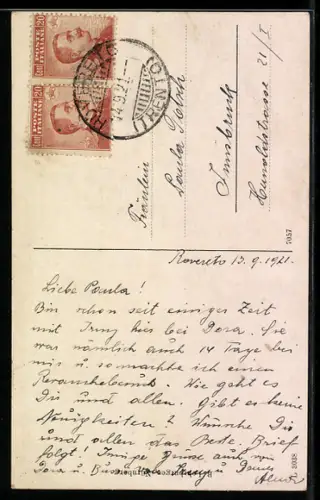 POSTE ITALIANE
Cent 20
POSTE ITALIANE
Cent 20
(TRENTO)
Fräulein
Paula
Innsbruck
21/I
7057
Rovereto 13.9.1921.
Liebe Paula!
Bin schon seit einiger Zeit
mit Irmy hier bei Dora. Sie
war nämlich auch 14 Tage bei
mir u. so machte ich einen
Wie geht es
Dir und allen. Gibt es keine
Neuigkeiten? Wünsche Dir
und allen das Beste. Brief
folgt! Innige Grüsse auch von
Dora u. von Irmy u. Deiner